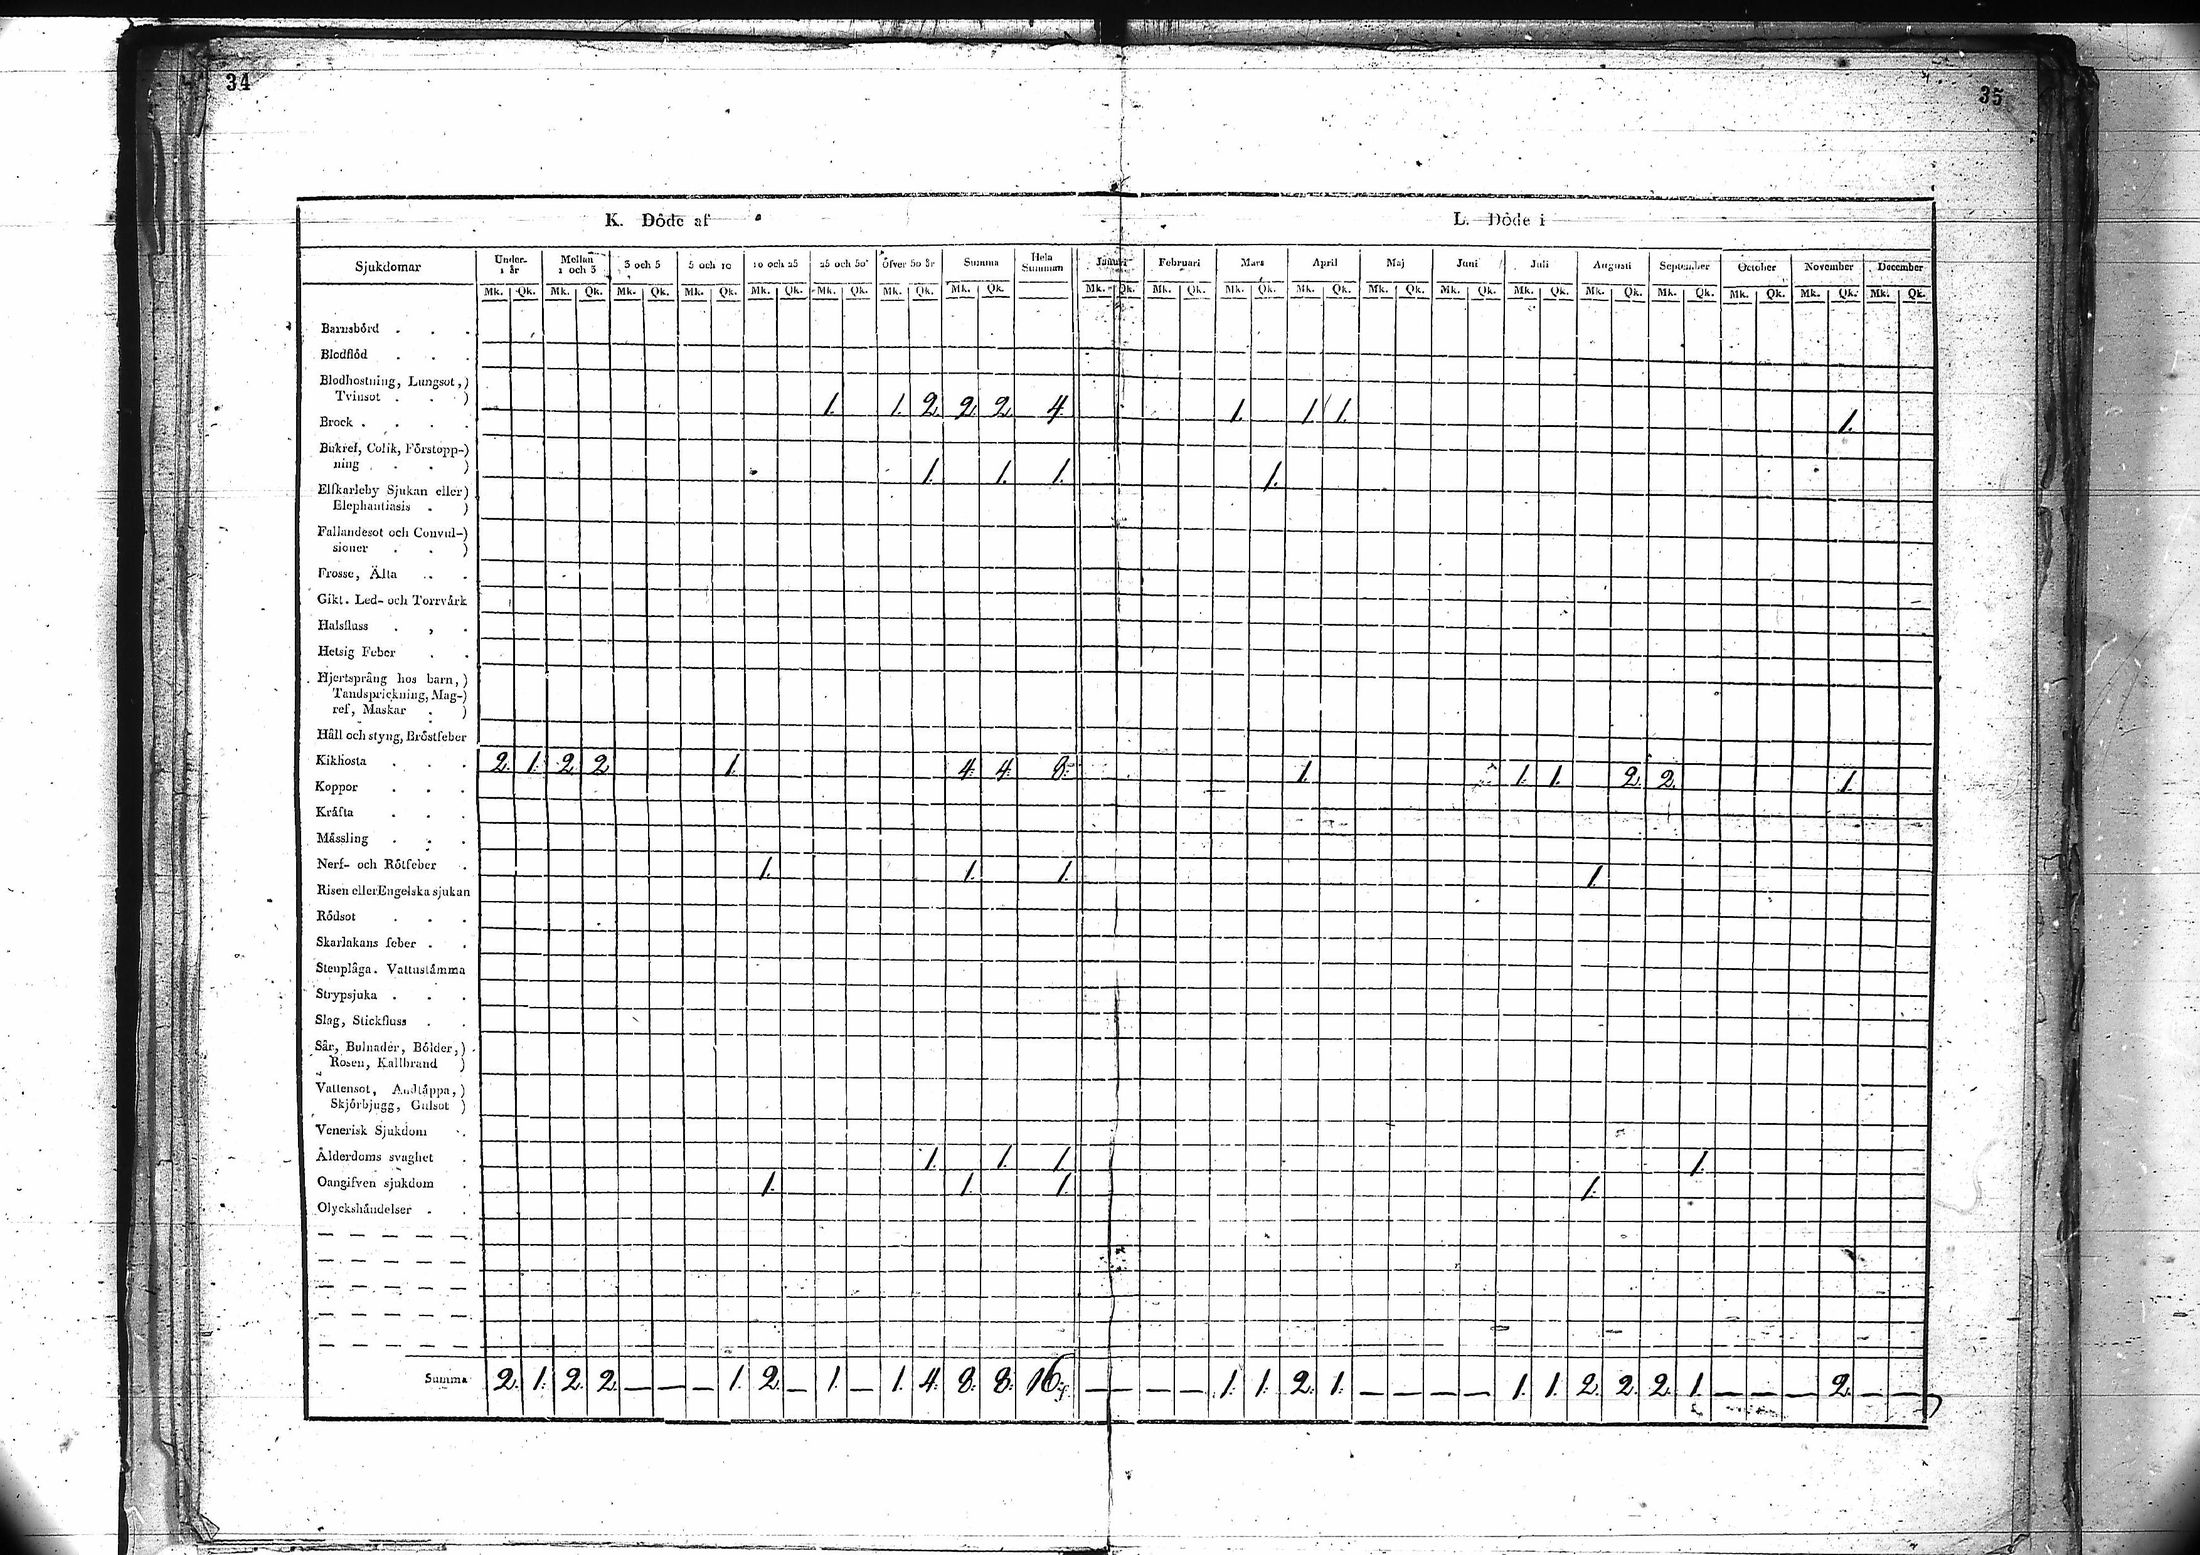 34
35
K. Döde af
L. Döde i
Sjukdomar Under 1 år Mellan 1 och 3 3 och 5 5 och 10 10 och 25 25 och 50 Öfver 50 år Summa Hela Summan Januari Februari Mars April Maj Juni Juli Augusti September October November December
Mk. Qk. Mk. Qk. Mk. Qk. Mk. Qk. Mk. Qk. Mk. Qk. Mk. Qk. Mk. Qk. Mk. Qk. Mk. Qk. Mk. Qk. Mk. Qk. Mk. Qk. Mk. Qk. Mk. Qk. Mk. Qk. Mk. Qk. Mk. Qk. Mk. Qk. Mk. Qk.
Barnsbörd . . .
Blodflöd . . .
Blodhostning, Lungsot, )
Tvinsot . . ) 1. 1. 2. 2. 2. 4. 1. 1. 1. 1.
Brock . . . .
Bukref, Colik, Förstopp-)
ning . . . ) 1. 1. 1. 1.
Elfkarleby Sjukan eller)
Elephantiasis . )
Fallandesot och Convul-)
sioner . . )
Frosse, Älta . .
Gikt. Led- och Torrvärk
Halsfluss . , .
Hetsig Feber . .
Hjertsprång hos barn, )
Tandsprickning, Mag-)
ref, Maskar . )
Håll och styng, Bröstfeber
Kikhosta . . . 2. 1. 2. 2. 1. 4. 4. 8. 1. 1. 1. 2. 2. 1.
Koppor . . .
Kräfta . . .
Mässling . . .
Nerf- och Rötfeber . 1. 1. 1. 1.
Risen eller Engelska sjukan
Rödsot . . .
Skarlakans feber . .
Stenplåga. Vattustämma
Strypsjuka . . .
Slag, Stickfluss . .
Sår, Bulnader, Bölder, )
Rosen, Kallbrand )
Vattensot, Andtäppa, )
Skjörbjugg, Gulsot )
Venerisk Sjukdom .
Ålderdoms svaghet . 1. 1. 1. 1.
Oangifven sjukdom . 1. 1. 1. 1.
Olyckshändelser . .
Summa 2. 1. 2. 2. — — — 1. 2. — 1. — 1. 4. 8. 8. 16. — — — — 1. 1. 2. 1. — — — — 1. 1. 2. 2. 2. 1. — — — 2. — —